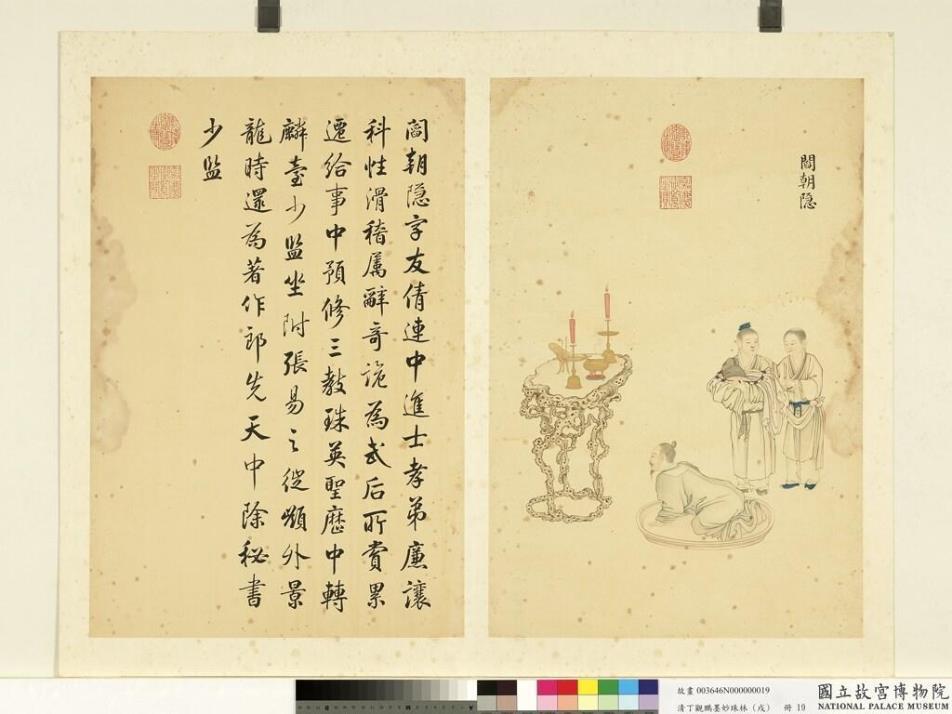 閻朝隠
閻朝隐字友倩連中進士孝弟廉讓
科性滑稽属辭奇詭為武后所賞累
遷給事中預修三教珠英聖歷中轉
麟臺少監坐附張易之徙嶺外景
龍時還為著作郎先天中除秘書
少监
故畫 003646N000000019
清丁觀鵬墨妙珠林（戌） 冊 19
國立故宮博物院
NATIONAL PALACE MUSEUM